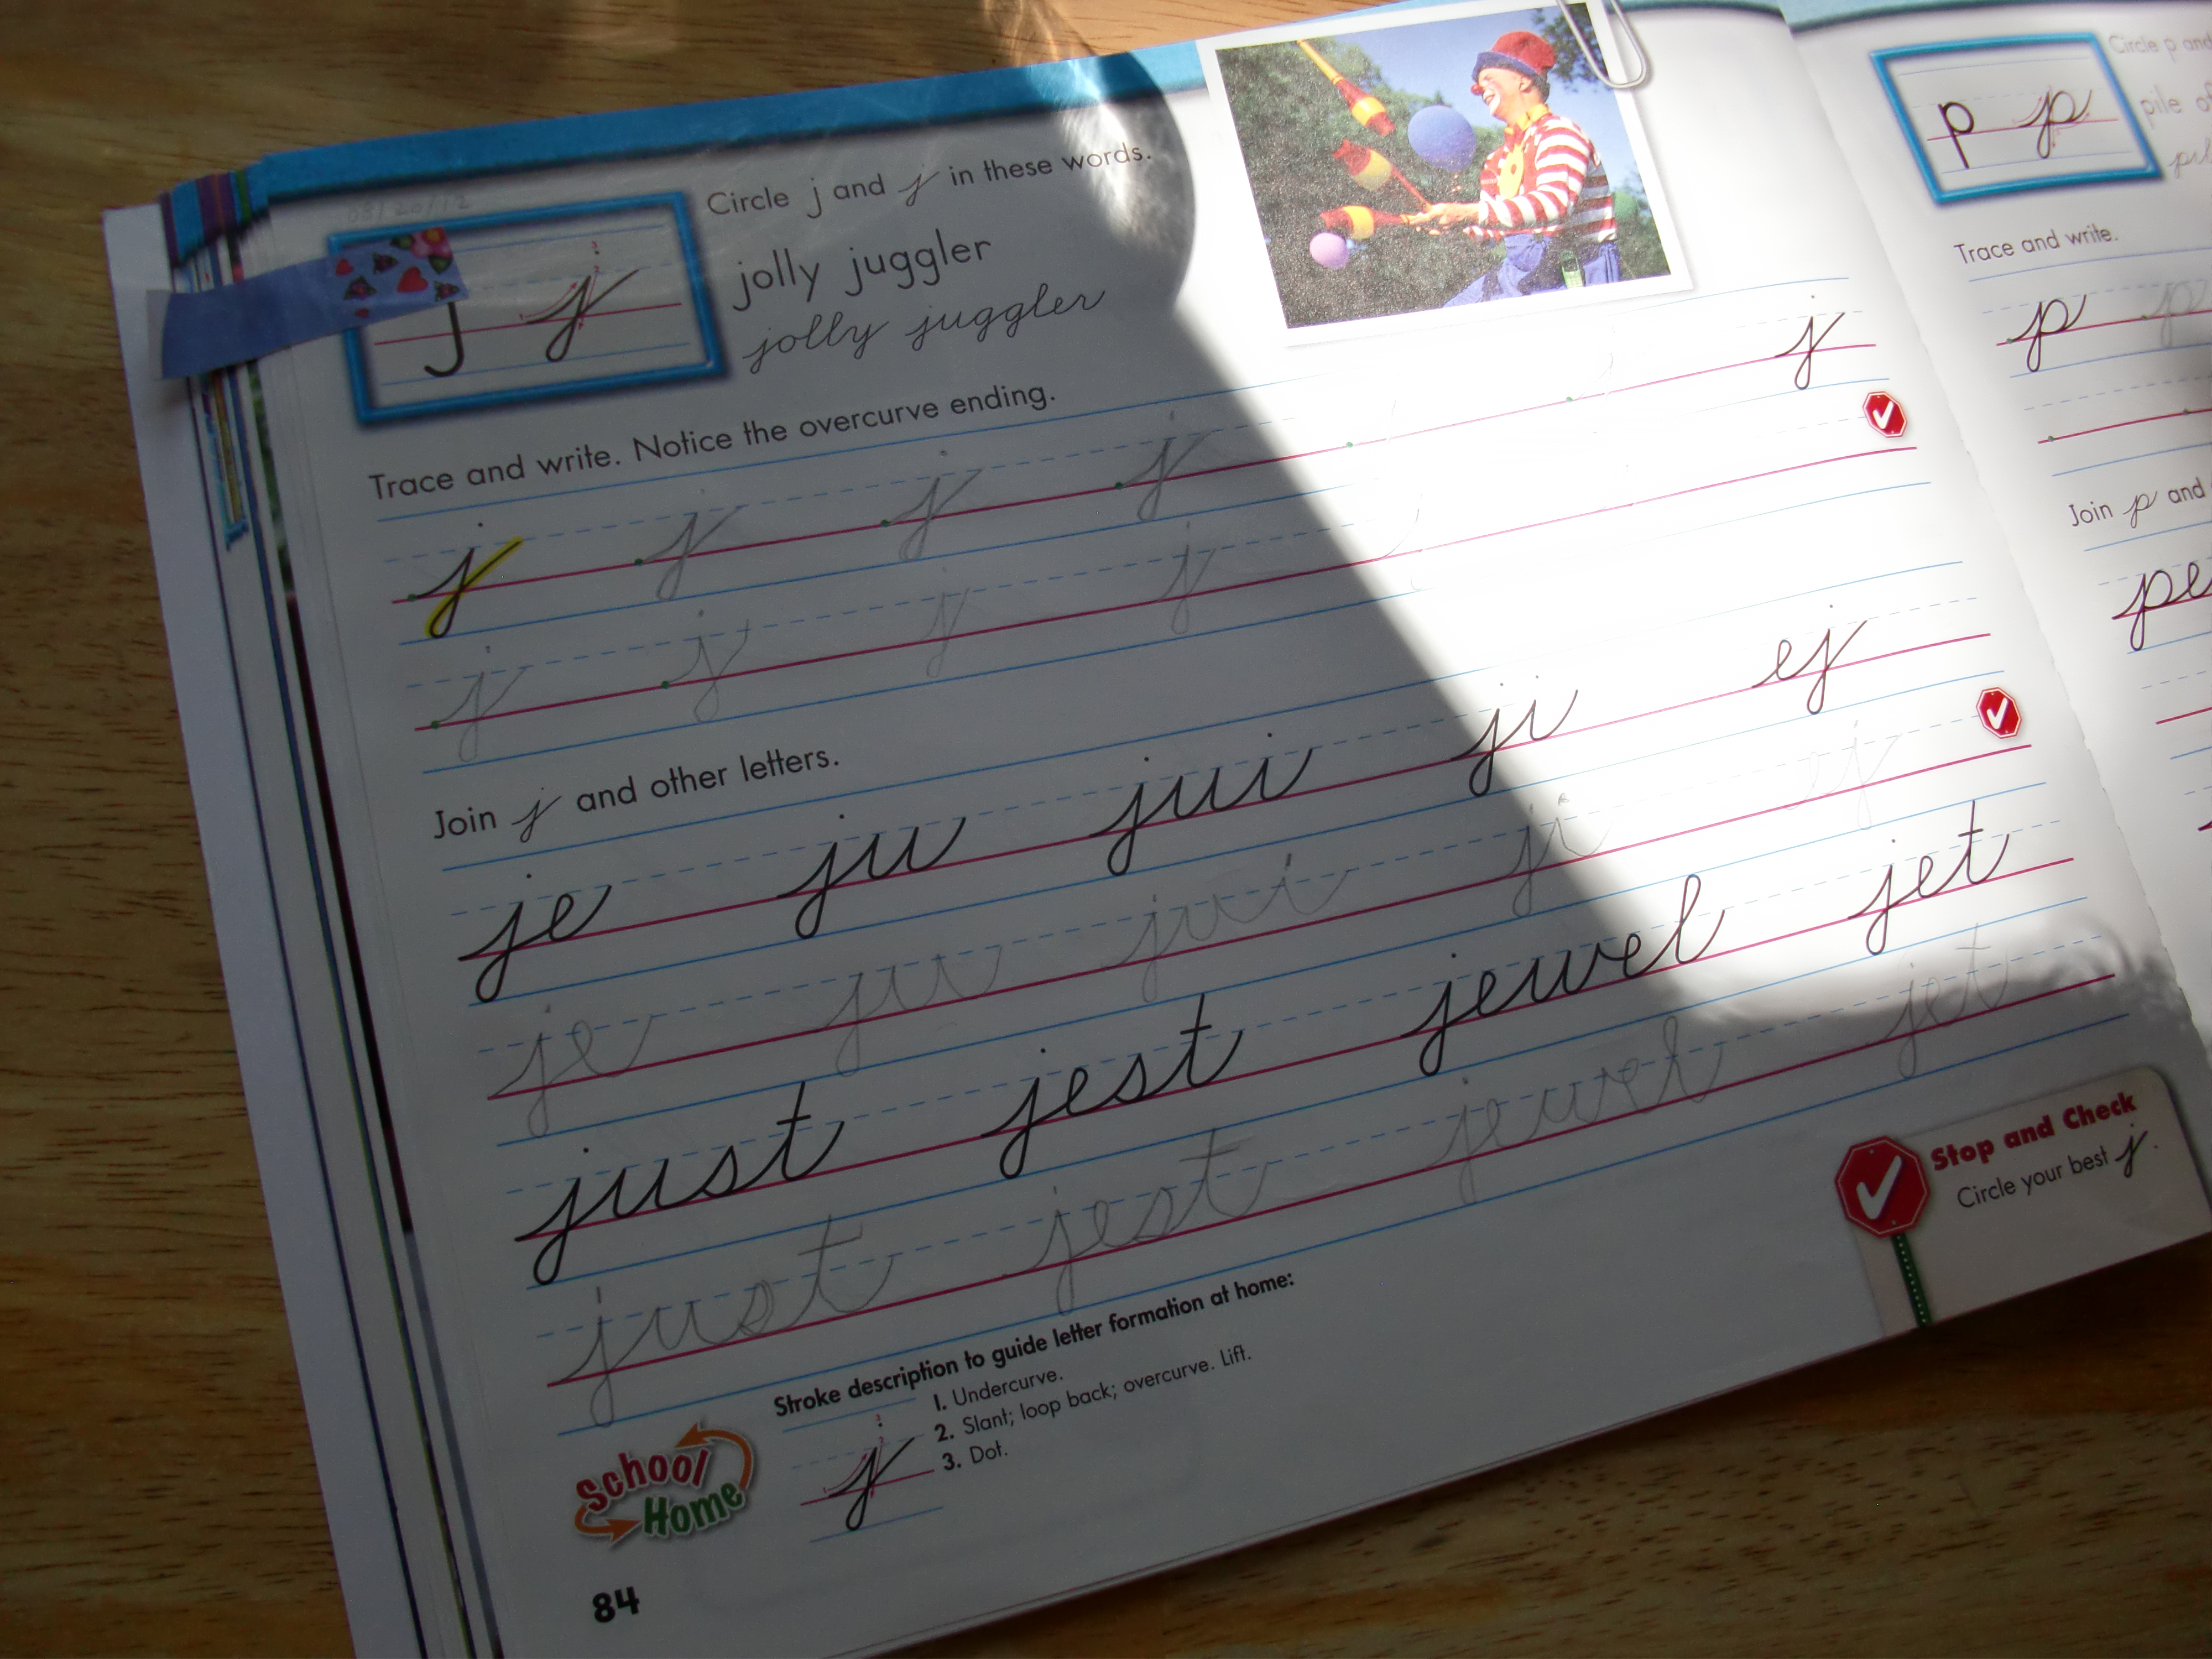 08/20/12
j j
Circle j and j in these words.
jolly juggler
jolly juggler
Trace and write. Notice the overcurve ending.
j j j j j
j j j j
Join j and other letters.
je ju jui ji ej
je ju jui ji ej
just jest jewel jet
just jest jewel jet
Stop and Check
Circle your best j.
School Home
Stroke description to guide letter formation at home:
1. Undercurve.
2. Slant; loop back; overcurve. Lift.
3. Dot.
j
84
p p
Circle p and
pile of
Trace and write.
p p
Join p and
pe